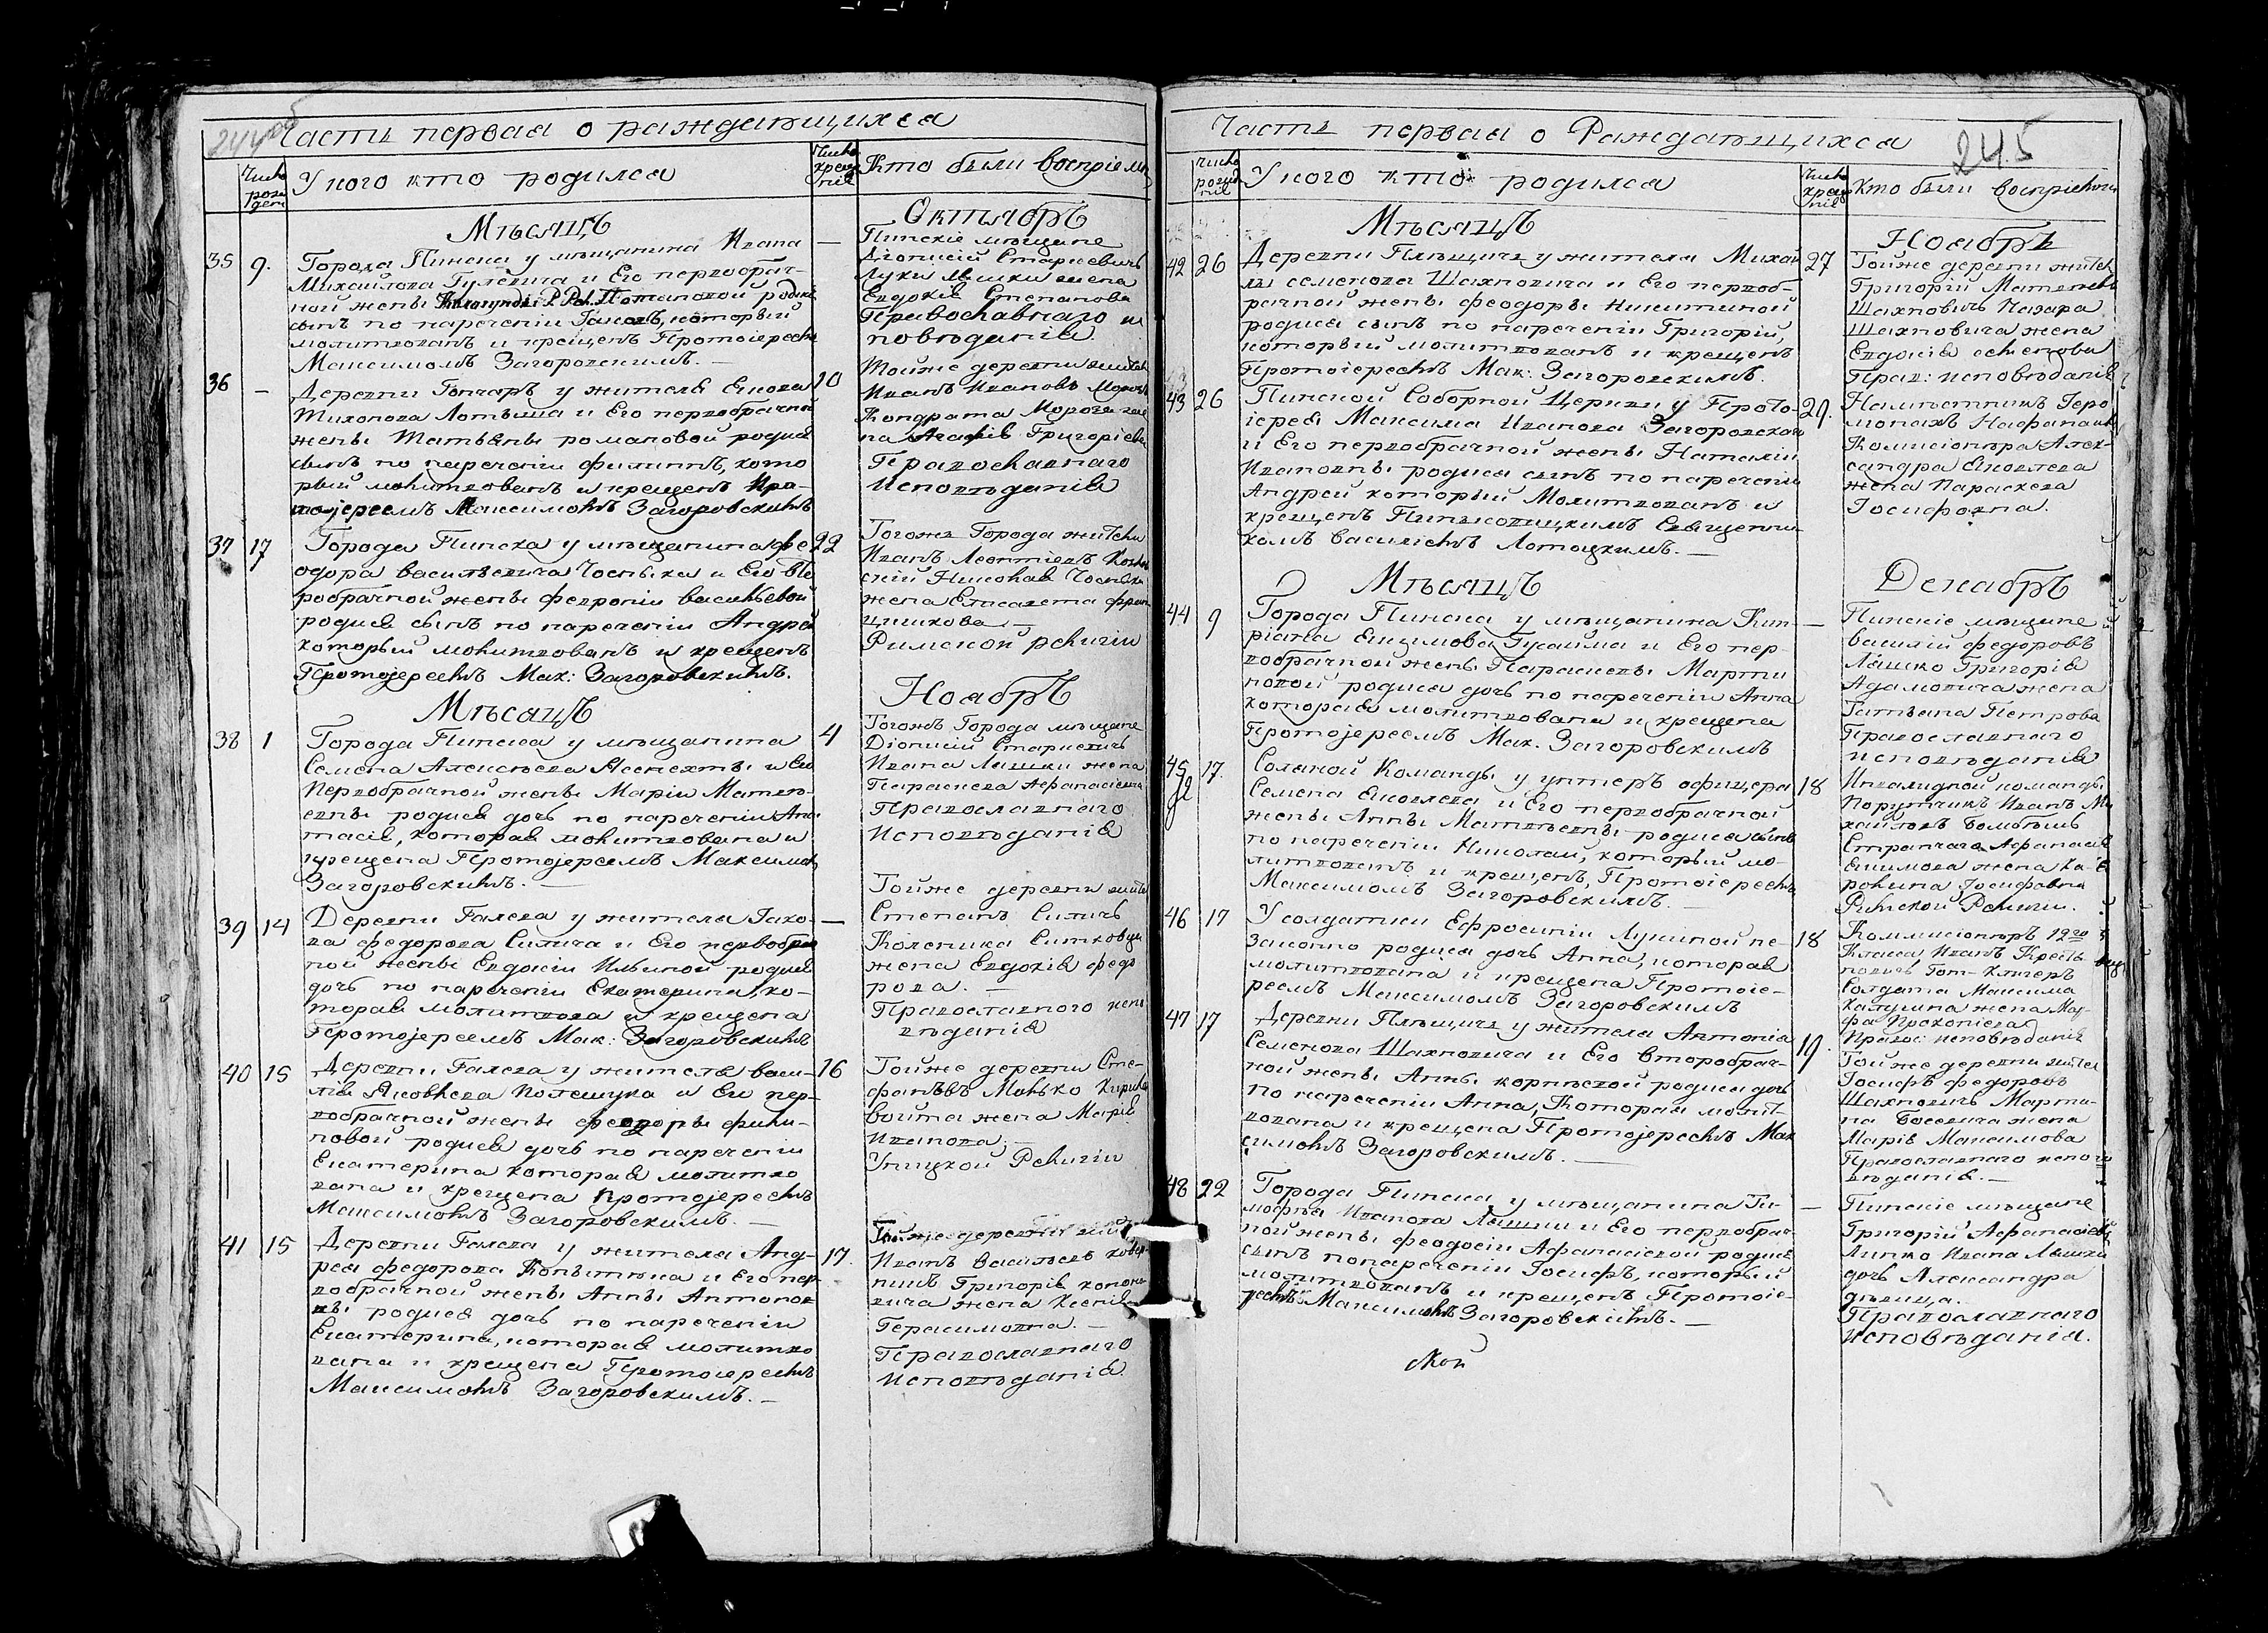 244 об
Часть первая о раждающихся
Число рожден
У кого кто родился
Число крещения
Кто были восприем
Мѣсяцъ
Октябрь
35 9. Города Пинска у мѣщанина Ивана —
Михайлова Гулевича и Его первобрач-
ной жены Потаповой родил
сынъ по наречении который
молитвованъ и крещенъ Протоіереемъ
Максимомъ Загоровскимъ. —
Пинскіе мѣщане
Діонисій Старкевичъ
Луки жена
Евдокія Степанова
Православнаго и
повѣданія.
36 — Деревни Гончаръ у жителя Якова 10
Тихонова Лотыша и Его первобрачной
жены Татьяны романовой родися
сынъ по наречении филиппъ, кото
рый молитвованъ и крещенъ Про-
тоіереемъ Максимомъ Загоровскимъ
Тойже деревни жител
Иванъ Ивановъ Мороз
Кондрата Мороза же
на Агафія Григоріева
Православнаго
Исповѣданія
37 17 Города Пинска у мѣщанина фе 22
одора васильевича и Его пе
робрачной жены февроніи васильевой
родися сынъ по наречении Андрей
который молитвованъ и крещенъ
Протоіереемъ Мак: Загоровскимъ.
Тогожъ Города жители
Иванъ Леонтіевъ
скій Николая
жена Елисавета фран
цишкова —
Римской релиіи
Мѣсяцъ
Ноябрь
38 1 Города Пинска у мѣщанина 4
Семена Алексѣева и Его
Первобрачной жены Маріи Матве-
евны родися дочь по наречении Ана
тасія, которая молитвована и
крещена Протоіереемъ Максимом
Загоровскимъ. —
Тогожъ Города мѣщане
Діонисій Старкевичъ
Ивана Ляшки жена
Параскева Афанасіевна
Православнаго
Исповѣданія
39 14 Деревни Галева у жителя Іако- —
ва федорова Силича и Его первобрач
ной жены Евдокіи Ильиной родися
дочь по наречении Екатерина, ко-
торая молитвова и крещена
Протоіереемъ Мак: Загоровскимъ
Тойже деревни жител
Степанъ Силичъ
жена Евдокія федо
рова. —
Православного испо
вѣданія
40 15 Деревни Галева у жителя васи- 16
лія Яковлева Полещука и Его пер-
вобрачной жены феодоры фили-
повой родися дочь по наречении
Екатерина которая молитво
вана и крещена протоіереемъ
Максимомъ Загоровскимъ. —
Тойже деревни Сте-
фанъ Минько
войта жена Марія
Иванова. —
Уницкой Релиіи
41 15 Деревни Галева у жителя Анд- 17.
рея федорова и Его пер-
вобрачной жены Анны Антонов
ны родися дочь по наречении
Екатерина, которая молитво
вана и крещена Протоіереемъ
Максимомъ Загоровскимъ. —
Тойже деревни жит
Иванъ Васильевъ
Григорія
вича жена Ксенія
Герасимовна. —
Православнаго
Исповѣданія.
Часть первая о Раждающихся
245
Число рожденія
У кого кто родился
Число крещенія
Кто были воспріемни
Мѣсяцъ
Ноябрь
42 26 Деревни Плещичъ у жителя Михай 27
лы семенова Шахновича и Его первоб-
рачной жены феодоры никитиной
родися сынъ по наречении Григорій,
который молитвованъ и крещенъ
Протоіереемъ Мак: Загоровскимъ.
Тойже деревни жител
Григорій Матвеевъ
Шахновичъ Назара
Шахновича жена
Евдокія семенова
Прав: исповѣданія
43 26 Пинской Соборной Церкви у Прото- 29.
іерея Максима Иванова Загоровскаго
и Его первобрачной жены Наталіи
Ивановны родися сынъ по наречении
Андрей который Молитвованъ и
крещенъ Священни-
комъ василіемъ Лотоцкимъ. —
Намѣстникъ Іеро
монахъ
Комисіонера Алек-
сандра Яковлева
жена Параскева
Іосифовна.
Мѣсяцъ
Декабрь
44 9 Города Пинска у мѣщанина Кип- —
ріана Екимова и Его пер-
вобрачной жены Параскевы Марти
новой родися дочь по наречении Анна
которая молитвована и крещена
Протоіереемъ Мак. Загоровскимъ
Пинскіе мѣщане
василій федоровъ
Ляшко Григорія
Адамовича жена
Татьяна Петрова
Православнаго
исповѣданія
45 17. Соляной Команды у унтеръ офицера 18
Семена Яковлева и Его первобрачной
жены Анны Матвѣевны родися сынъ
по наречении Николай, который мо-
литвованъ и крещенъ, Протоіереемъ
Максимомъ Загоровскимъ. —
Инвалидной команды
Порутчикъ Иванъ Ми
хайловъ
Стряпчаго Афанасія
Екимова жена Ка-
ролина Іосифовна
Римской Релиіи.
46 17 У солдатки Ефросиніи Лукиной не- 18
законно родися дочь Анна, которая
молитвована и крещена Протоіе-
реемъ Максимомъ Загоровскимъ
Коммисіонеръ 12го
Класса Иванъ
Солдата Максима
Калугина жена Мар-
фа Прокопіева
Правос: исповѣданія
47 17 Деревни Плещичъ у жителя Антонія 19.
Семенова Шахновича и Его второбрач-
ной жены Анны корнѣевой родися дочь
по наречении Анна, Которая молит-
вована и крещена Протоіереемъ Мак
симомъ Загоровскимъ. —
Тойже деревни жител
Іосифъ федоровъ
Шахновичъ Марти-
на жена
Марія Максимова
Православнаго испо
вѣданія. —
48 22 Города Пинска у мѣщанина Ти- —
мофѣя Иванова Ляшки и Его первобрач-
ной жены феодосіи Афанасіевой родися
сынъ по наречении Іосифъ, который
молитвованъ и крещенъ Протоіе-
реемъ Максимомъ Загоровскимъ. —
Пинскіе мѣщане
Григорій Афанасіевъ
Липко Ивана Ляшки
дочь Александра
дѣвица.
Православнаго
исповѣданія.
ской